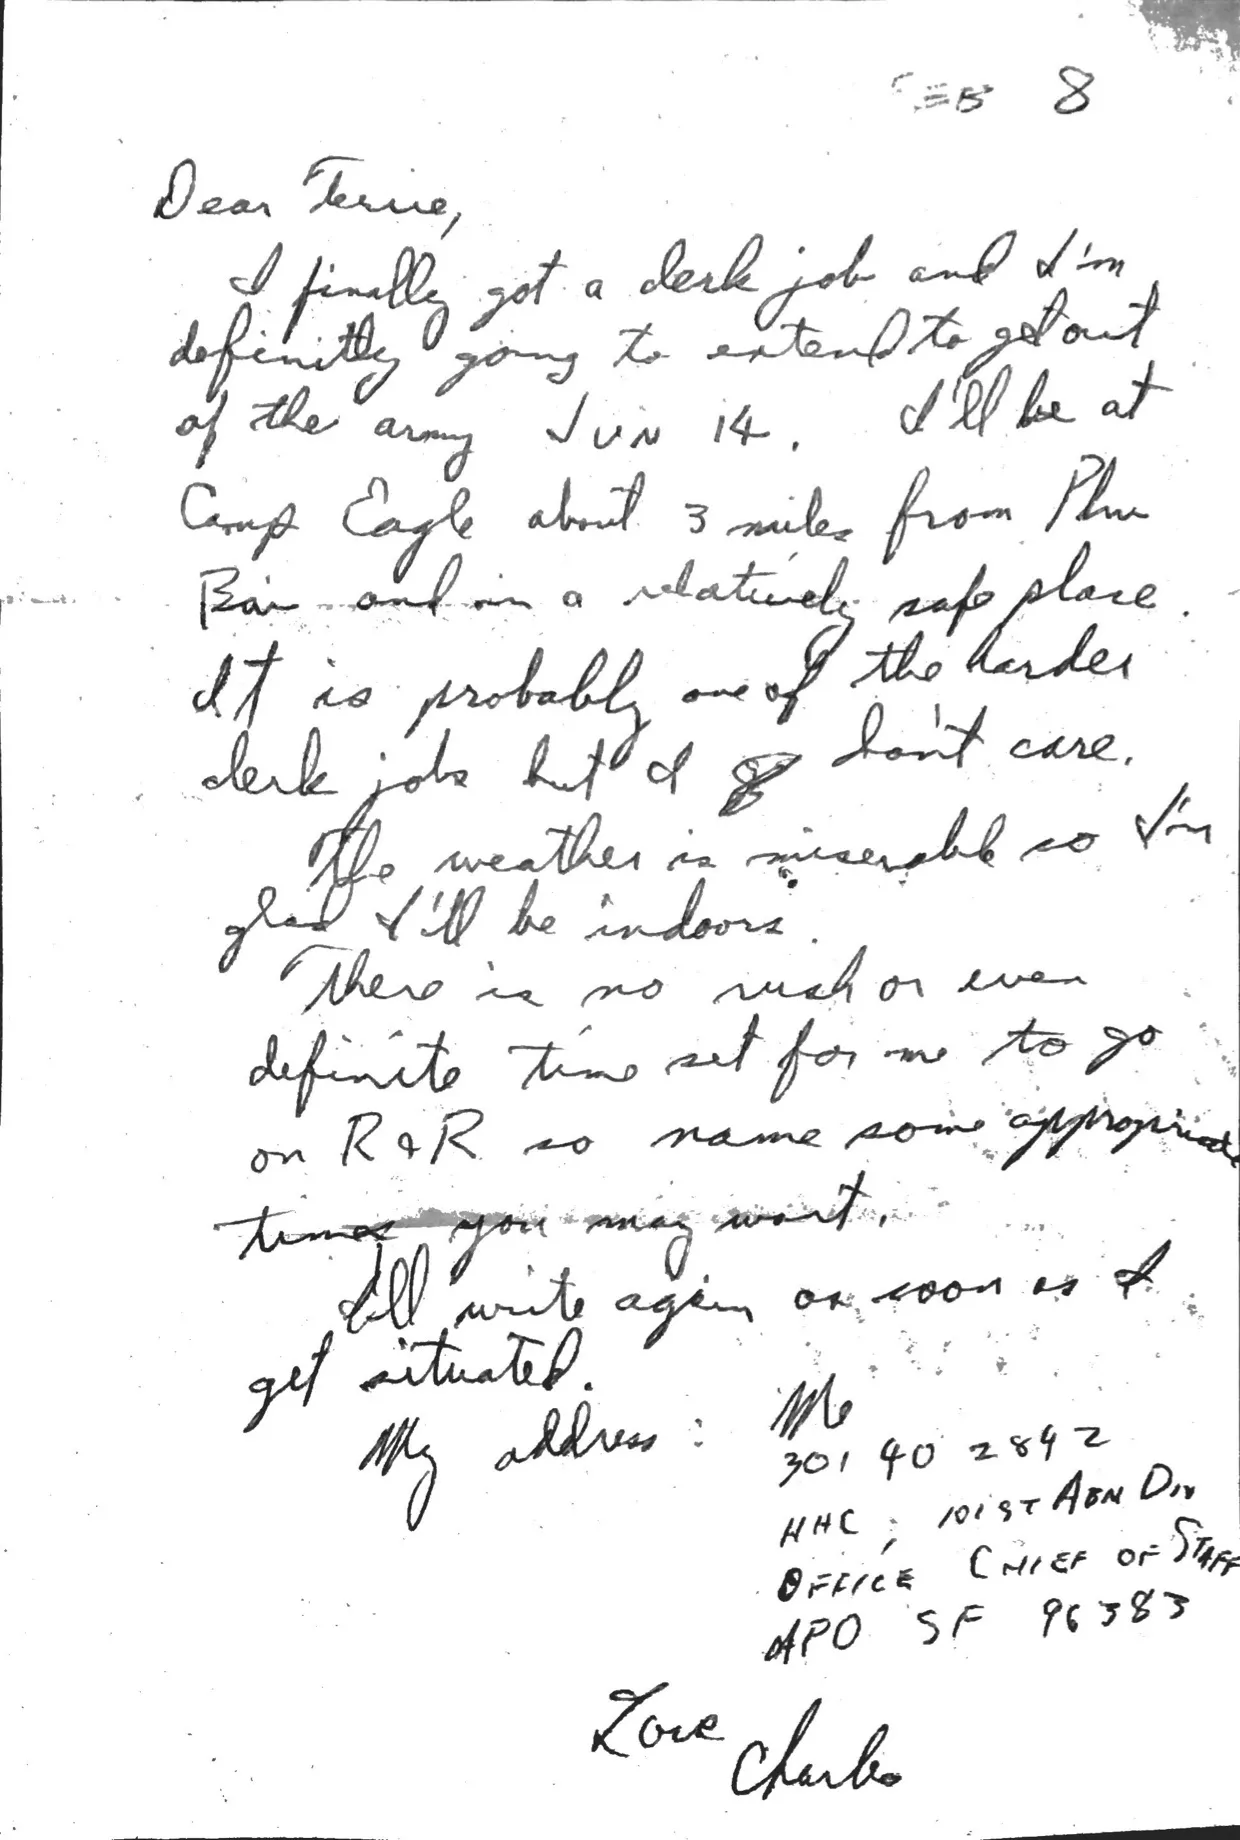 FEB 8
Dear Terrie,
I finally got a desk job and I'm
definitly going to extend to get out
of the army JUN 14. I'll be at
Camp Eagle about 3 miles from Phu
Bai and in a relatively safe place.
It is probably one of the harder
desk jobs but I don't care.
The weather is miserable so I'm
glad I'll be indoors.
There is no rush or even
definite time set for me to go
on R & R so name some appropriate
times you may want.
I'll write again as soon as I
get situated.
My address: Me
301 40 2842
HHC, 101ST ABN DIV
OFFICE CHIEF OF STAFF
APO SF 96383
Love
Charles